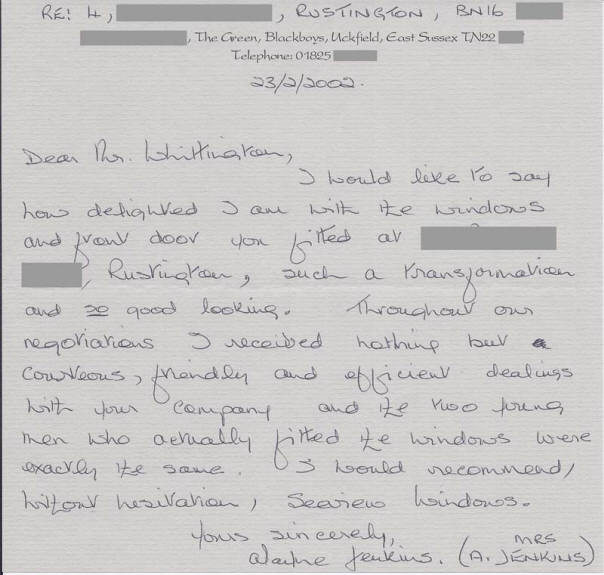 RE: 4, , RUSTINGTON, BN16
, The Green, Blackboys, Uckfield, East Sussex TN22
Telephone: 01825
23/2/2002.
Dear Mr. Whittington,
I would like to say
how delighted I am with the windows
and front door you fitted at
, Rustington, such a transformation
and so good looking. Throughout our
negotiations I received nothing but
courteous, friendly and efficient dealings
with your company and the two young
men who actually fitted the windows were
exactly the same. I would recommend,
without hesitation, Seaview Windows.
Yours sincerely,
Jenkins. (MRS A. JENKINS)